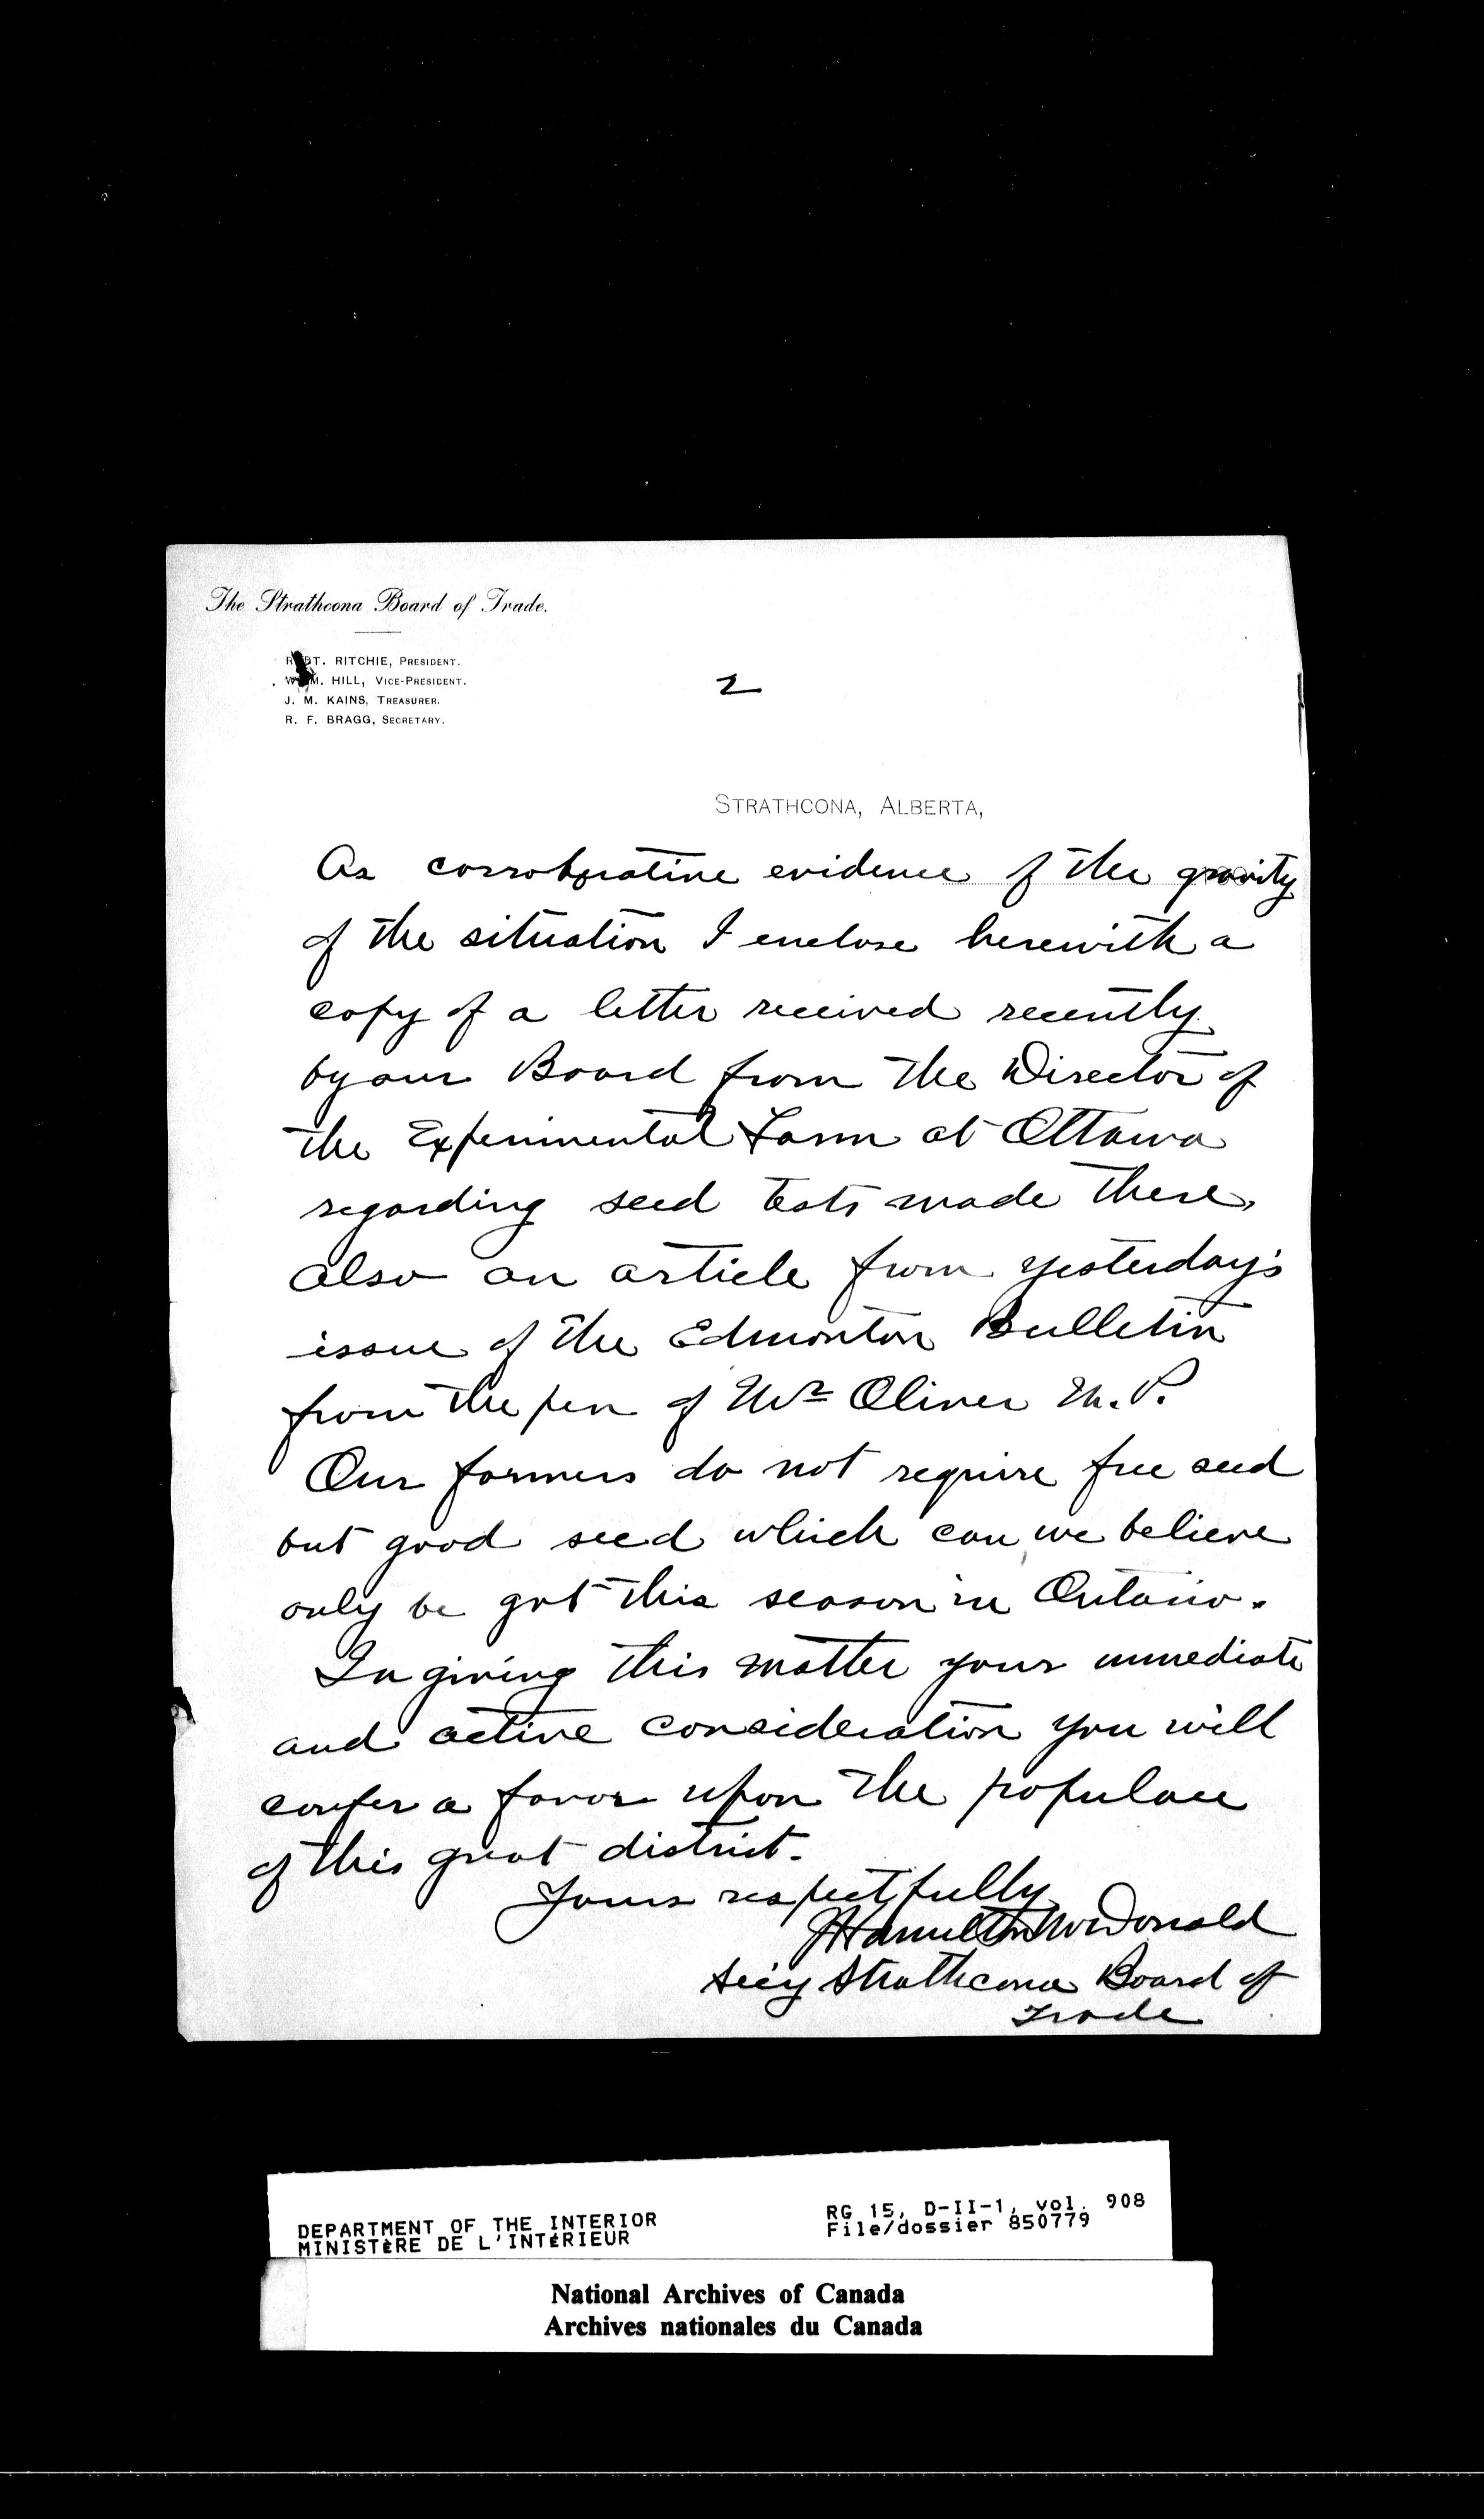 The Strathcona Board of Trade.
ROBT. RITCHIE, PRESIDENT.
WM. HILL, VICE-PRESIDENT.
J. M. KAINS, TREASURER.
R. F. BRAGG, SECRETARY.
2
STRATHCONA, ALBERTA,
As corroborative evidence of the gravity
of the situation I enclose herewith a
copy of a letter received recently
by our Board from the Director of
the Experimental Farm at Ottawa
regarding seed tests made there,
also an article from yesterday's
issue of the Edmonton Bulletin
from the pen of Mr Oliver M.P.
Our farmers do not require free seed
but good seed which can, we believe
only be got this season in Ontario.
In giving this matter your immediate
and active consideration you will
confer a favor upon the populace
of this great district.
Yours respectfully
J Hamilton McDonald
Sec'y Strathcona Board of
Trade
DEPARTMENT OF THE INTERIOR
MINISTÈRE DE L'INTÉRIEUR
RG 15, D-II-1, vol. 908
File/dossier 850779
National Archives of Canada
Archives nationales du Canada